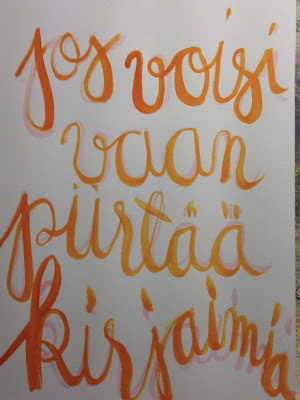 jos voisi
vaan
piirtää
kirjaimia